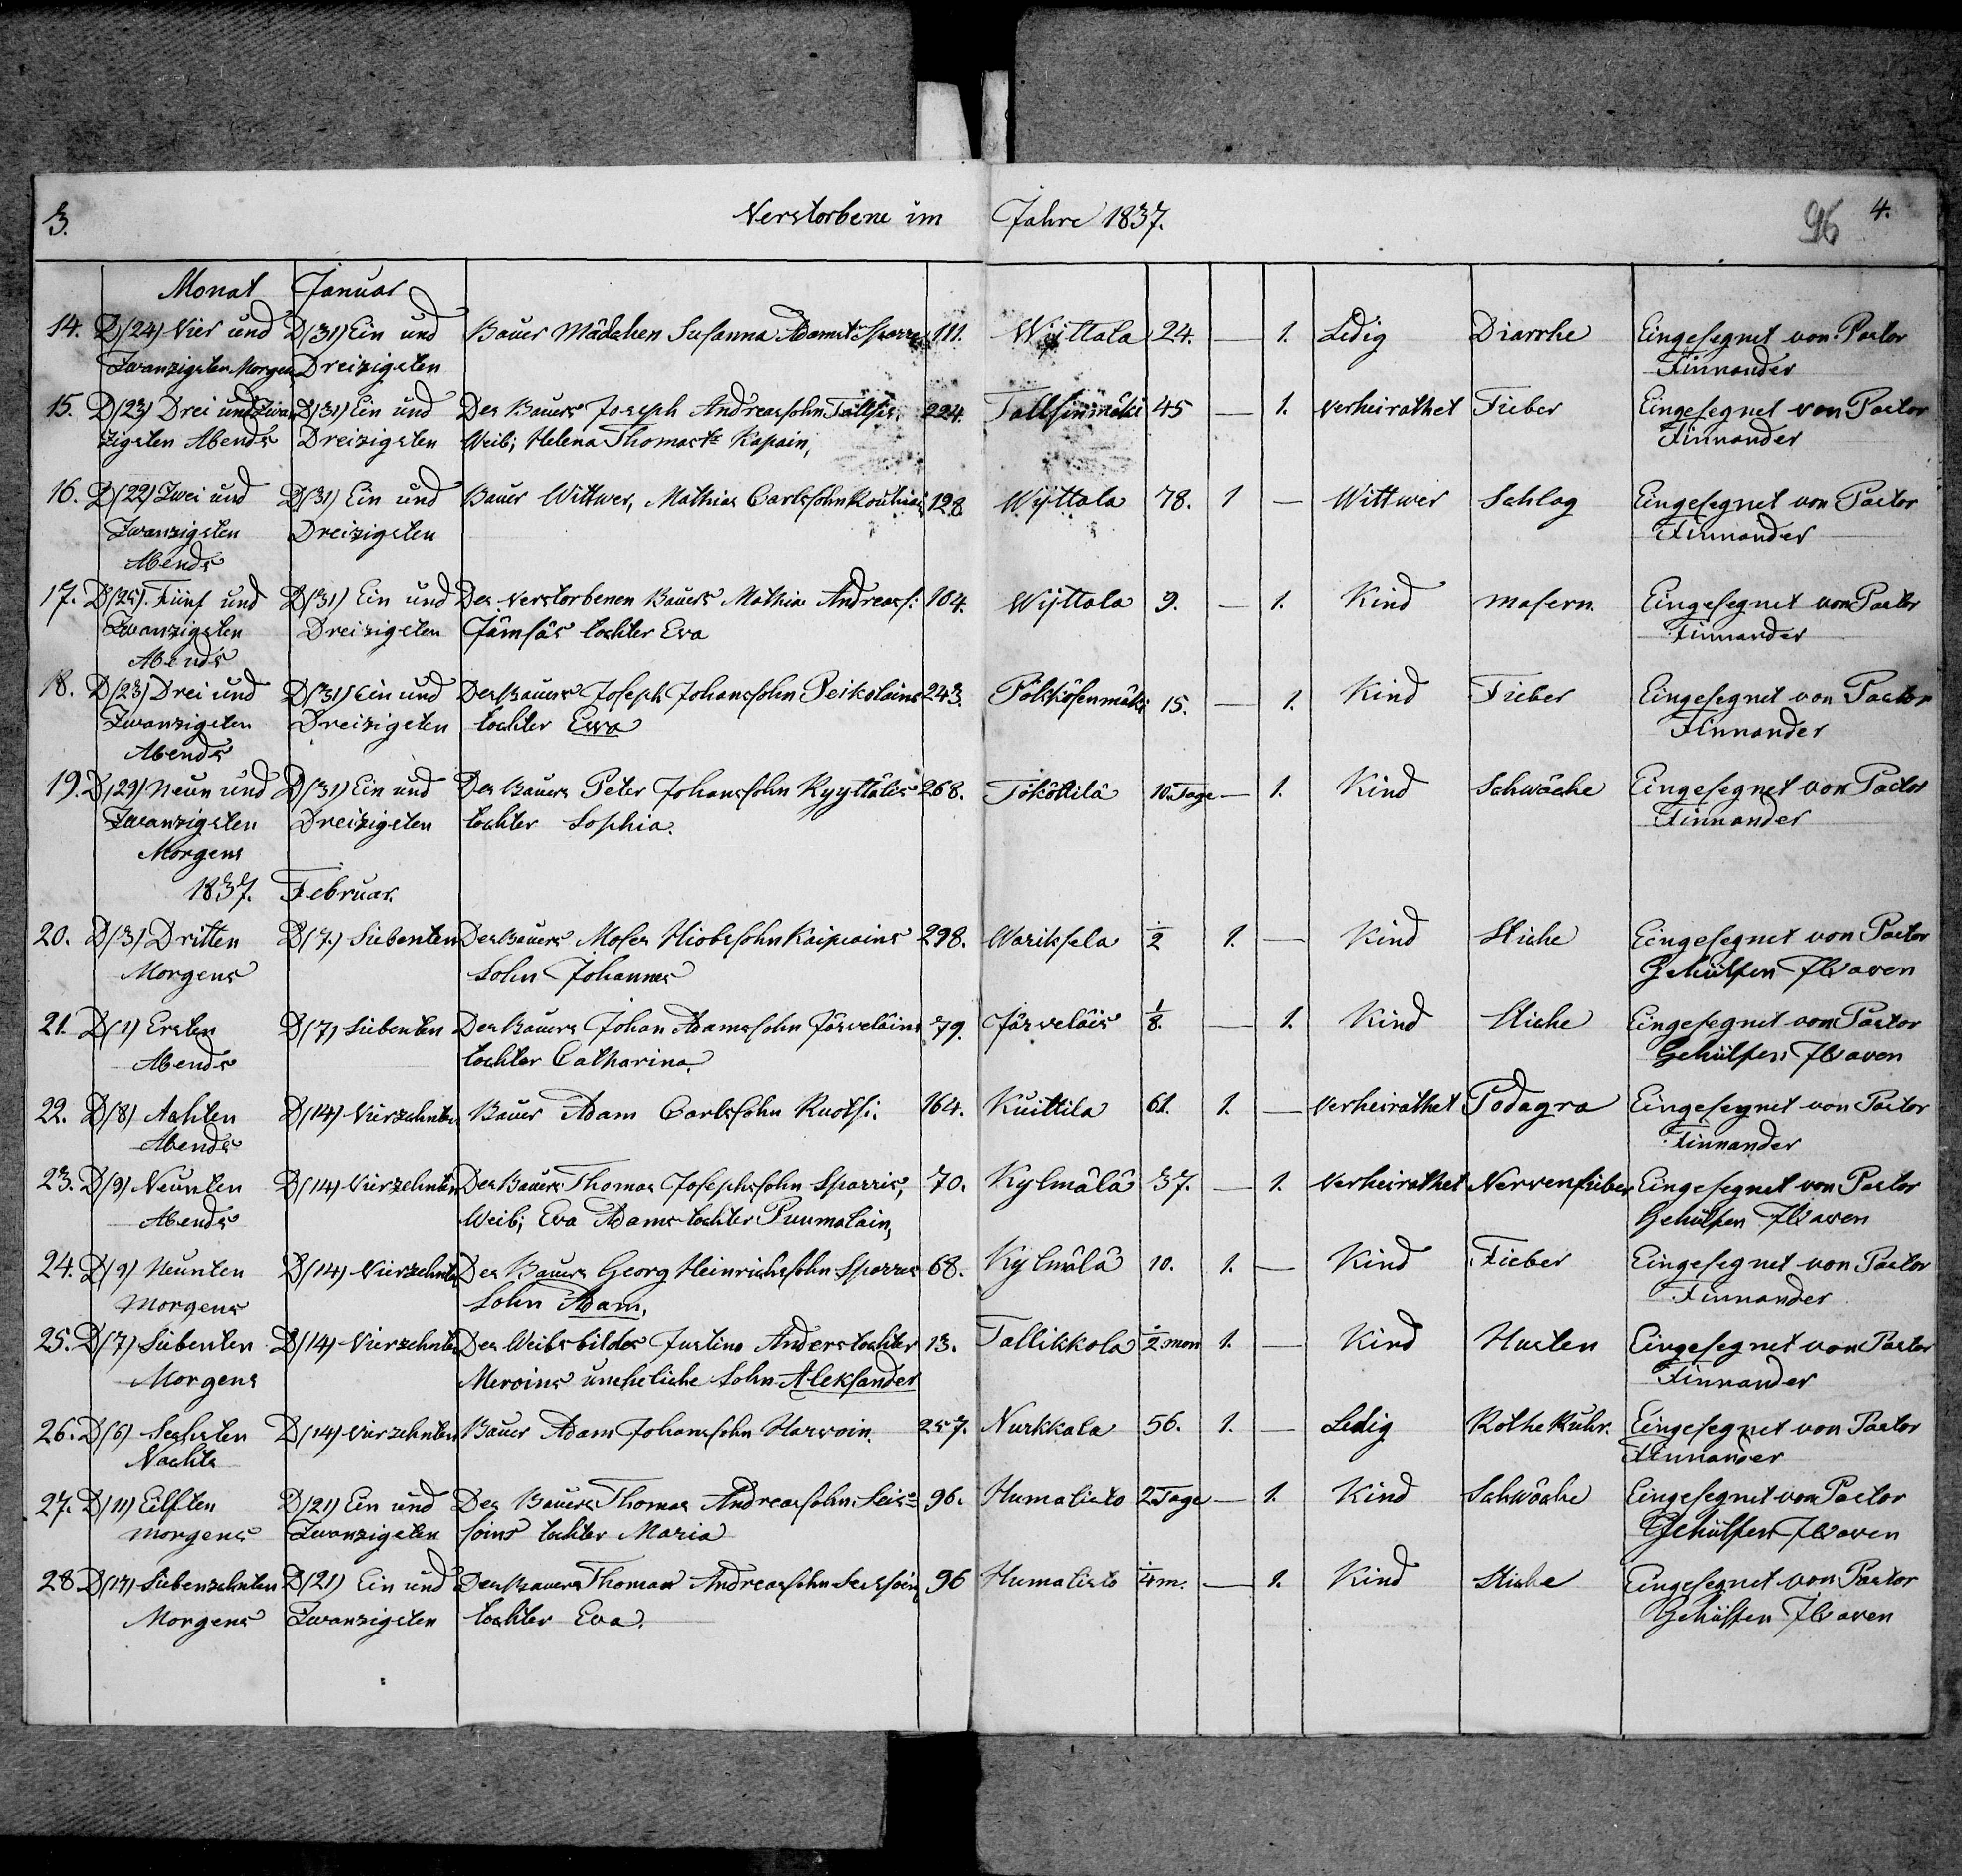 3. Verstorbene im Jahre 1837. 96 4.
Monat Januar
14. D(24) Vier und D(31) Ein und Bauer Mädchen Susanna Adamst: Sparre 111. Wyttala 24. — 1. Ledig Diarrhe Eingesegnet von Pastor
Zwanzigsten Morgen Dreizigsten Finnander
15. D(23) Drei und Zwan D(31) Ein und Des Bauers Joseph Andreassohn 224. Tallsinmäki 45 — 1. Verheirathet Fieber Eingesegnet von Pastor
zigsten Abends Dreizigsten Weib; Helena Thomast: Kapain, Finnander
16. D(22) Zwei und D(31) Ein und Bauer Wittwer, Mathias Carlssohn 128 Wyttala 78. 1 — Wittwer Schlag Eingesegnet von Pastor
Zwanzigsten Dreizigsten Finnander
Abends
17. D(25). Fünf und D(31) Ein und Des Verstorbenen Bauers Mathias Andreass: 104. Wyttala 9. — 1. Kind masern. Eingesegnet von Pastor
Zwanzigsten Dreizigsten Jämsäs tochter Eva Finnander
Abends
18. D(23) Drei und D(31) Ein und Des Bauers Joseph Johanssohn Peikolains 243. Pölkösenmäki 15. — 1. Kind Fieber Eingesegnet von Pastor
Zwanzigsten Dreizigsten tochter Ewa Finnander
Abends
19. D(29) Neun und D(31) Ein und Des Bauers Peter Johanssohn Kyyttäläs 268. Tököttilä 10. Tage — 1. Kind Schwäche Eingesegnet von Pastor
Zwanzigsten Dreizigsten tochter Sophia. Finnander
Morgens
1837. Februar.
20. D(3) Dritten D(7.) Siebenten Des Bauers Moses Hiobssohn Kaipiains 298. Wariksela 1/2 1. — Kind Stiche Eingesegnet von Pastor
Morgens Sohn Johannes Gehülfen Ilvaven
21. D(1) Ersten D(7) Siebenten Des Bauers Johan Adamssohn Järveläins 79. Järveläis 1/8. — 1. Kind Stiche Eingesegnet von Pastor
Abends tochter Catharina. Gehülfen Ilvaven
22. D(8) Achten D(14) Vierzehnten Bauer Adam Carlssohn Ruotsi. 164. Kuittila 61. 1. — Verheirathet Podagra Eingesegnet von Pastor
Abends Finnander
23. D(9) Neunten D(14) Vierzehnten Des Bauers Thomas Josephssohn Sparris, 70. Kylmälä 37. — 1. Verheirathet Nervenfieber Eingesegnet von Pastor
Abends Weib; Eva Adams tochter Puumalain, Gehülfen Ilvaven
24. D(9) Neunten D(14) Vierzehnten Des Bauers Georg Heinrichssohn Sparres 68. Kylmälä 10. 1. — Kind Fieber Eingesegnet von Pastor
Morgens Sohn Adam, Finnander
25. D(7) Siebenten D(14) Vierzehnten Des Weibsbildes Justina Anders tochter 13. Tallikkola 1/2 mon 1. — Kind Husten Eingesegnet von Pastor
Morgens Meroins uneheliche Sohn Aleksander Finnander
26. D(6) Sechsten D(14) Vierzehnten Bauer Adam Johanssohn Harvoin. 257. Nurkkala 56. 1. — Ledig Rothe Ruhr. Eingesegnet von Pastor
Nachts Finnander
27. D(11) Eilften D(21) Ein und Des Bauers Thomas Andreassohn Seis= 96. Humalisto 2 Tage — 1. Kind Schwäche Eingesegnet von Pastor
morgens Zwanzigsten soins tochter Maria Gehülfen Ilvaven
28 D(17) Siebenzehnten D(21) Ein und Des Bauers Thomas Andreassohn 96 Humalisto 1/4 m. — 1. Kind Stiche Eingesegnet von Pastor
Morgens Zwanzigsten tochter Eva. Gehülfen Ilvaven